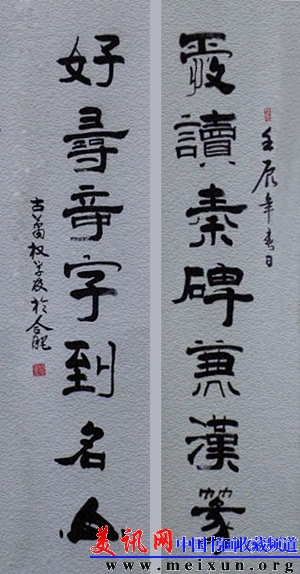 壬辰年春日
愛讀秦碑兼漢篆
好尋竒字到名山
古 权 於合肥
美讯网 中国书画收藏频道
www.meixun.org